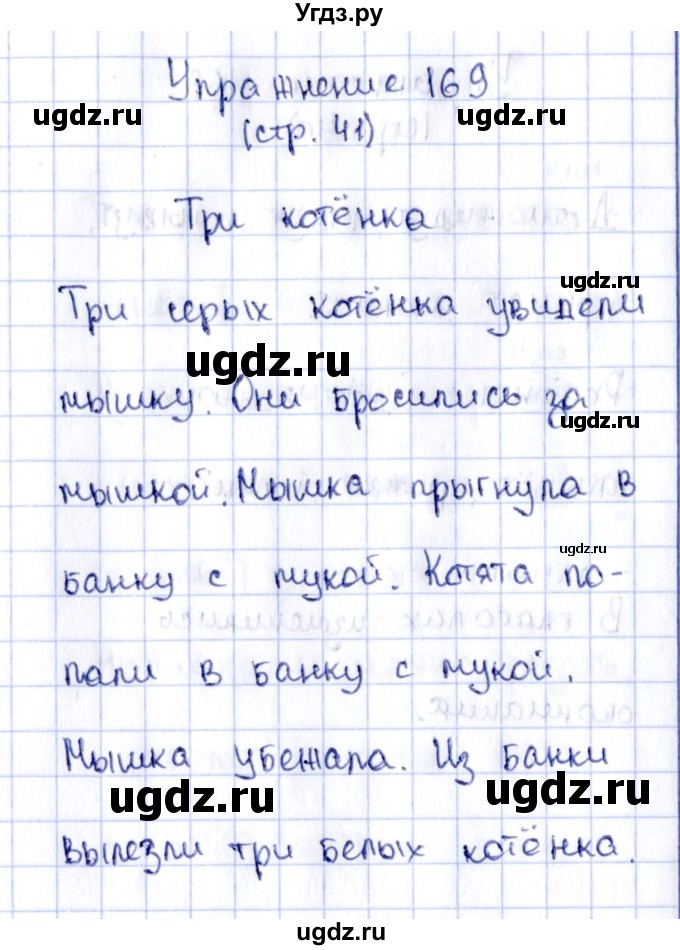 Угдз.ру
Упражнение 169
ugdz.ru ugdz.ru
(стр. 41)
Три котёнка
ugdz.ru
Три серых котёнка увидели
ugdz.ru
мышку. Они бросились за
ugdz.ru
мышкой. Мышка прыгнула в
ugdz.ru
банку с мукой. Котята по-
пали в банку с мукой.
Мышка убежала. Из банки
ugdz.ru ugdz.ru
вылезли три белых котёнка.
ugdz.ru